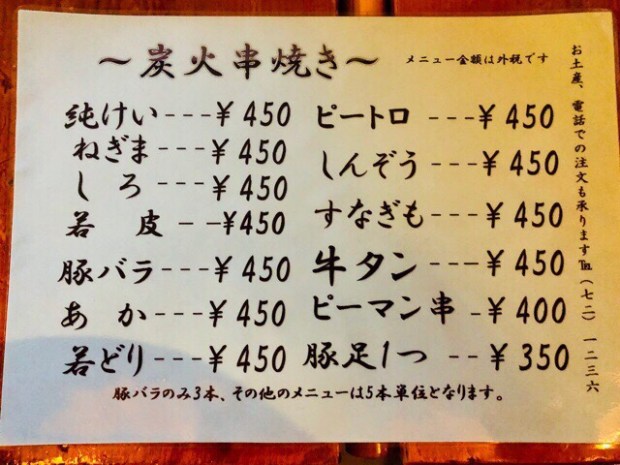 ～炭火串焼き～
メニュー金額は外税です
純けい---¥450
ねぎま---¥450
しろ---¥450
若皮---¥450
豚バラ---¥450
あか---¥450
若どり---¥450
ピートロ---¥450
しんぞう---¥450
すなぎも--¥450
牛タン---¥450
ピーマン串-¥400
豚足1つ--¥350
豚バラのみ3本、その他のメニューは5本単位となります。
お土産、電話での注文も承ります℡(七二)一二三六